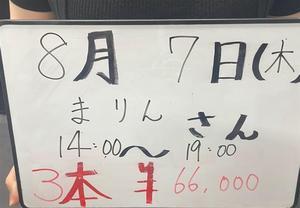 8月 7日(木)
まりん さん
14:00〜19:00
3本 ¥66,000